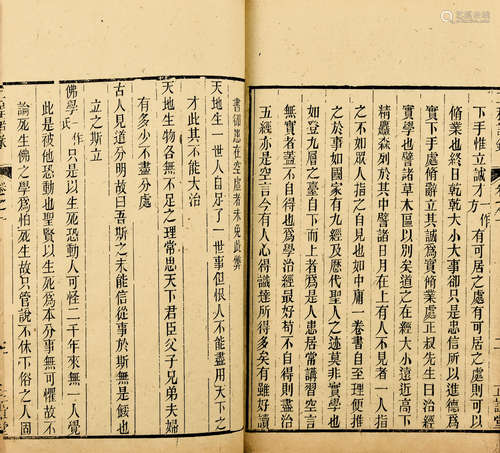 動也立誠才一作方有可居之處有可居之處則可以
修業也終日乾乾大小大事卻只是忠信所以進德為
實下手處修辭立其誠為實修業處正叔先生曰治經
實學也譬諸草木區以別矣道之在經大小遠近高下
精麤森列於其中譬諸日月在上有人不見者一人指
之不如眾人指之自見也如中庸一卷書自至理便推
之於事如國家有九經及歷代聖人之迹莫非實學也
如登九層之臺自下而上者為是人患居常講習空言
無實者蓋不自得也為學治經最好苟不自得則盡治
五經亦是空言今有人心得識達所得多矣有雖好讀
書卻患在空虛者未免此弊
天地生一世人自足了一世事但恨人不能盡用天下之
才此其不能大治
天地生物各無不足之理常思天下君臣父子兄弟夫婦
有多少不盡分處
古人見道分明故曰吾斯之未能信從事於斯無是餒也
立之斯立
佛學一作氏只是以生死恐動人可怪二千年來無一人覺
此是被他恐動也聖賢以生死為本分事無可懼故不
論死生佛之學為怕死生故只管說不休下俗之人固